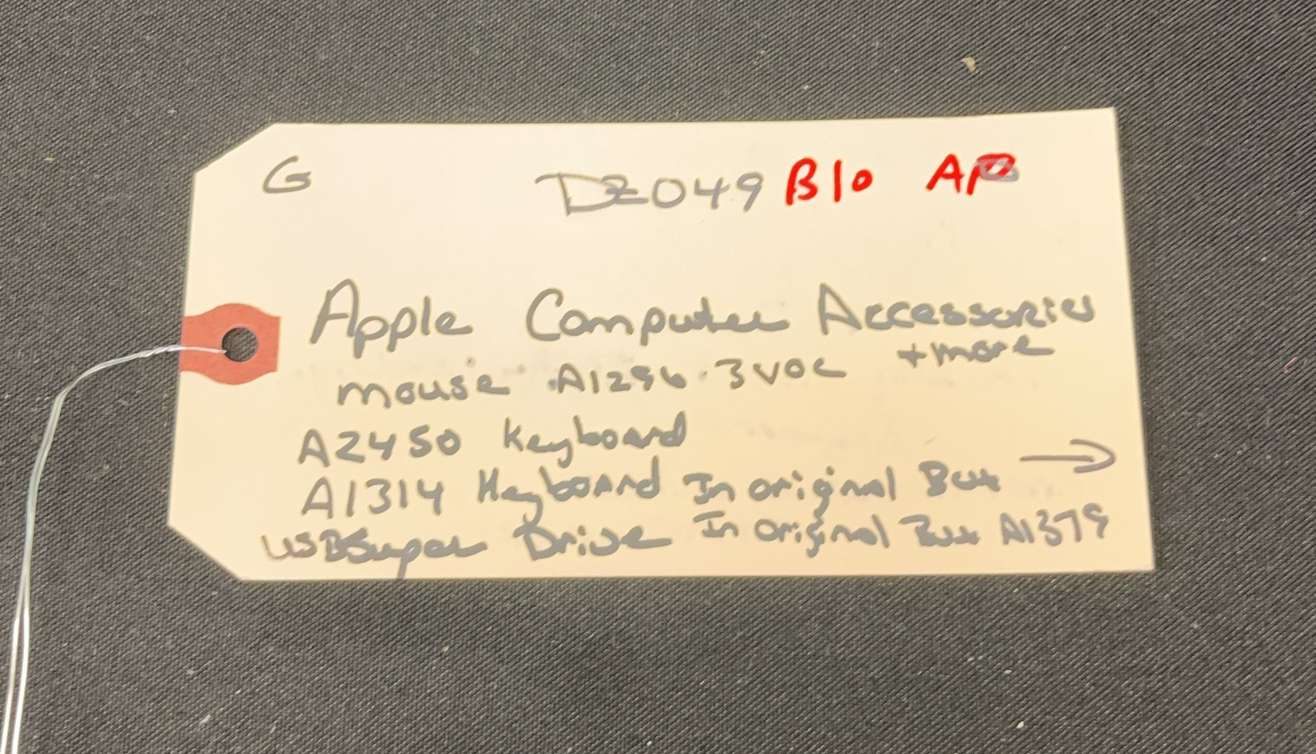 G DZ049 B10 AP
Apple Computer Accessories
+ more
mouse A1296 3VDC
A2450 Keyboard
A1314 Keyboard In original Box →
USB Super Drive In Original Box A1379